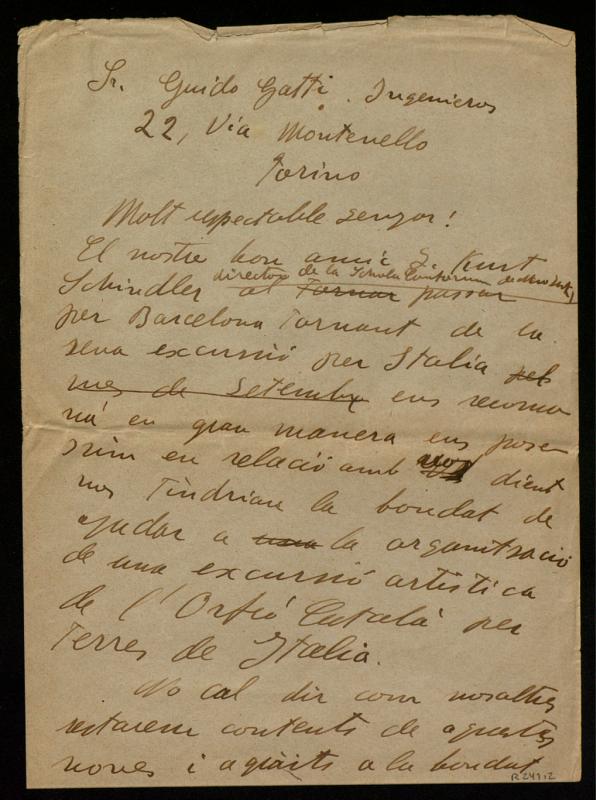 Sr. Guido Gatti. Ingenieros
22, Via Montevello
Torino
Molt respectable senyor!
El nostre bon amic S. Kurt
director de la Schola Cantorum de New York
Schindler al Tornar passar
per Barcelona Tornant de la
seva excursió per Italia pel
mes de Setembre ens recoma
nà en gran manera ens posse
ssim en relació amb vos dient
nos Tindrian la bondat de
ajudar a una la organitsació
de una excursió artística
de l'Orfeó Català per
Terres de Italia.
No cal dir com nosaltres
restarem contents de aquestas
noves i agraits a la bondat
R 247.2